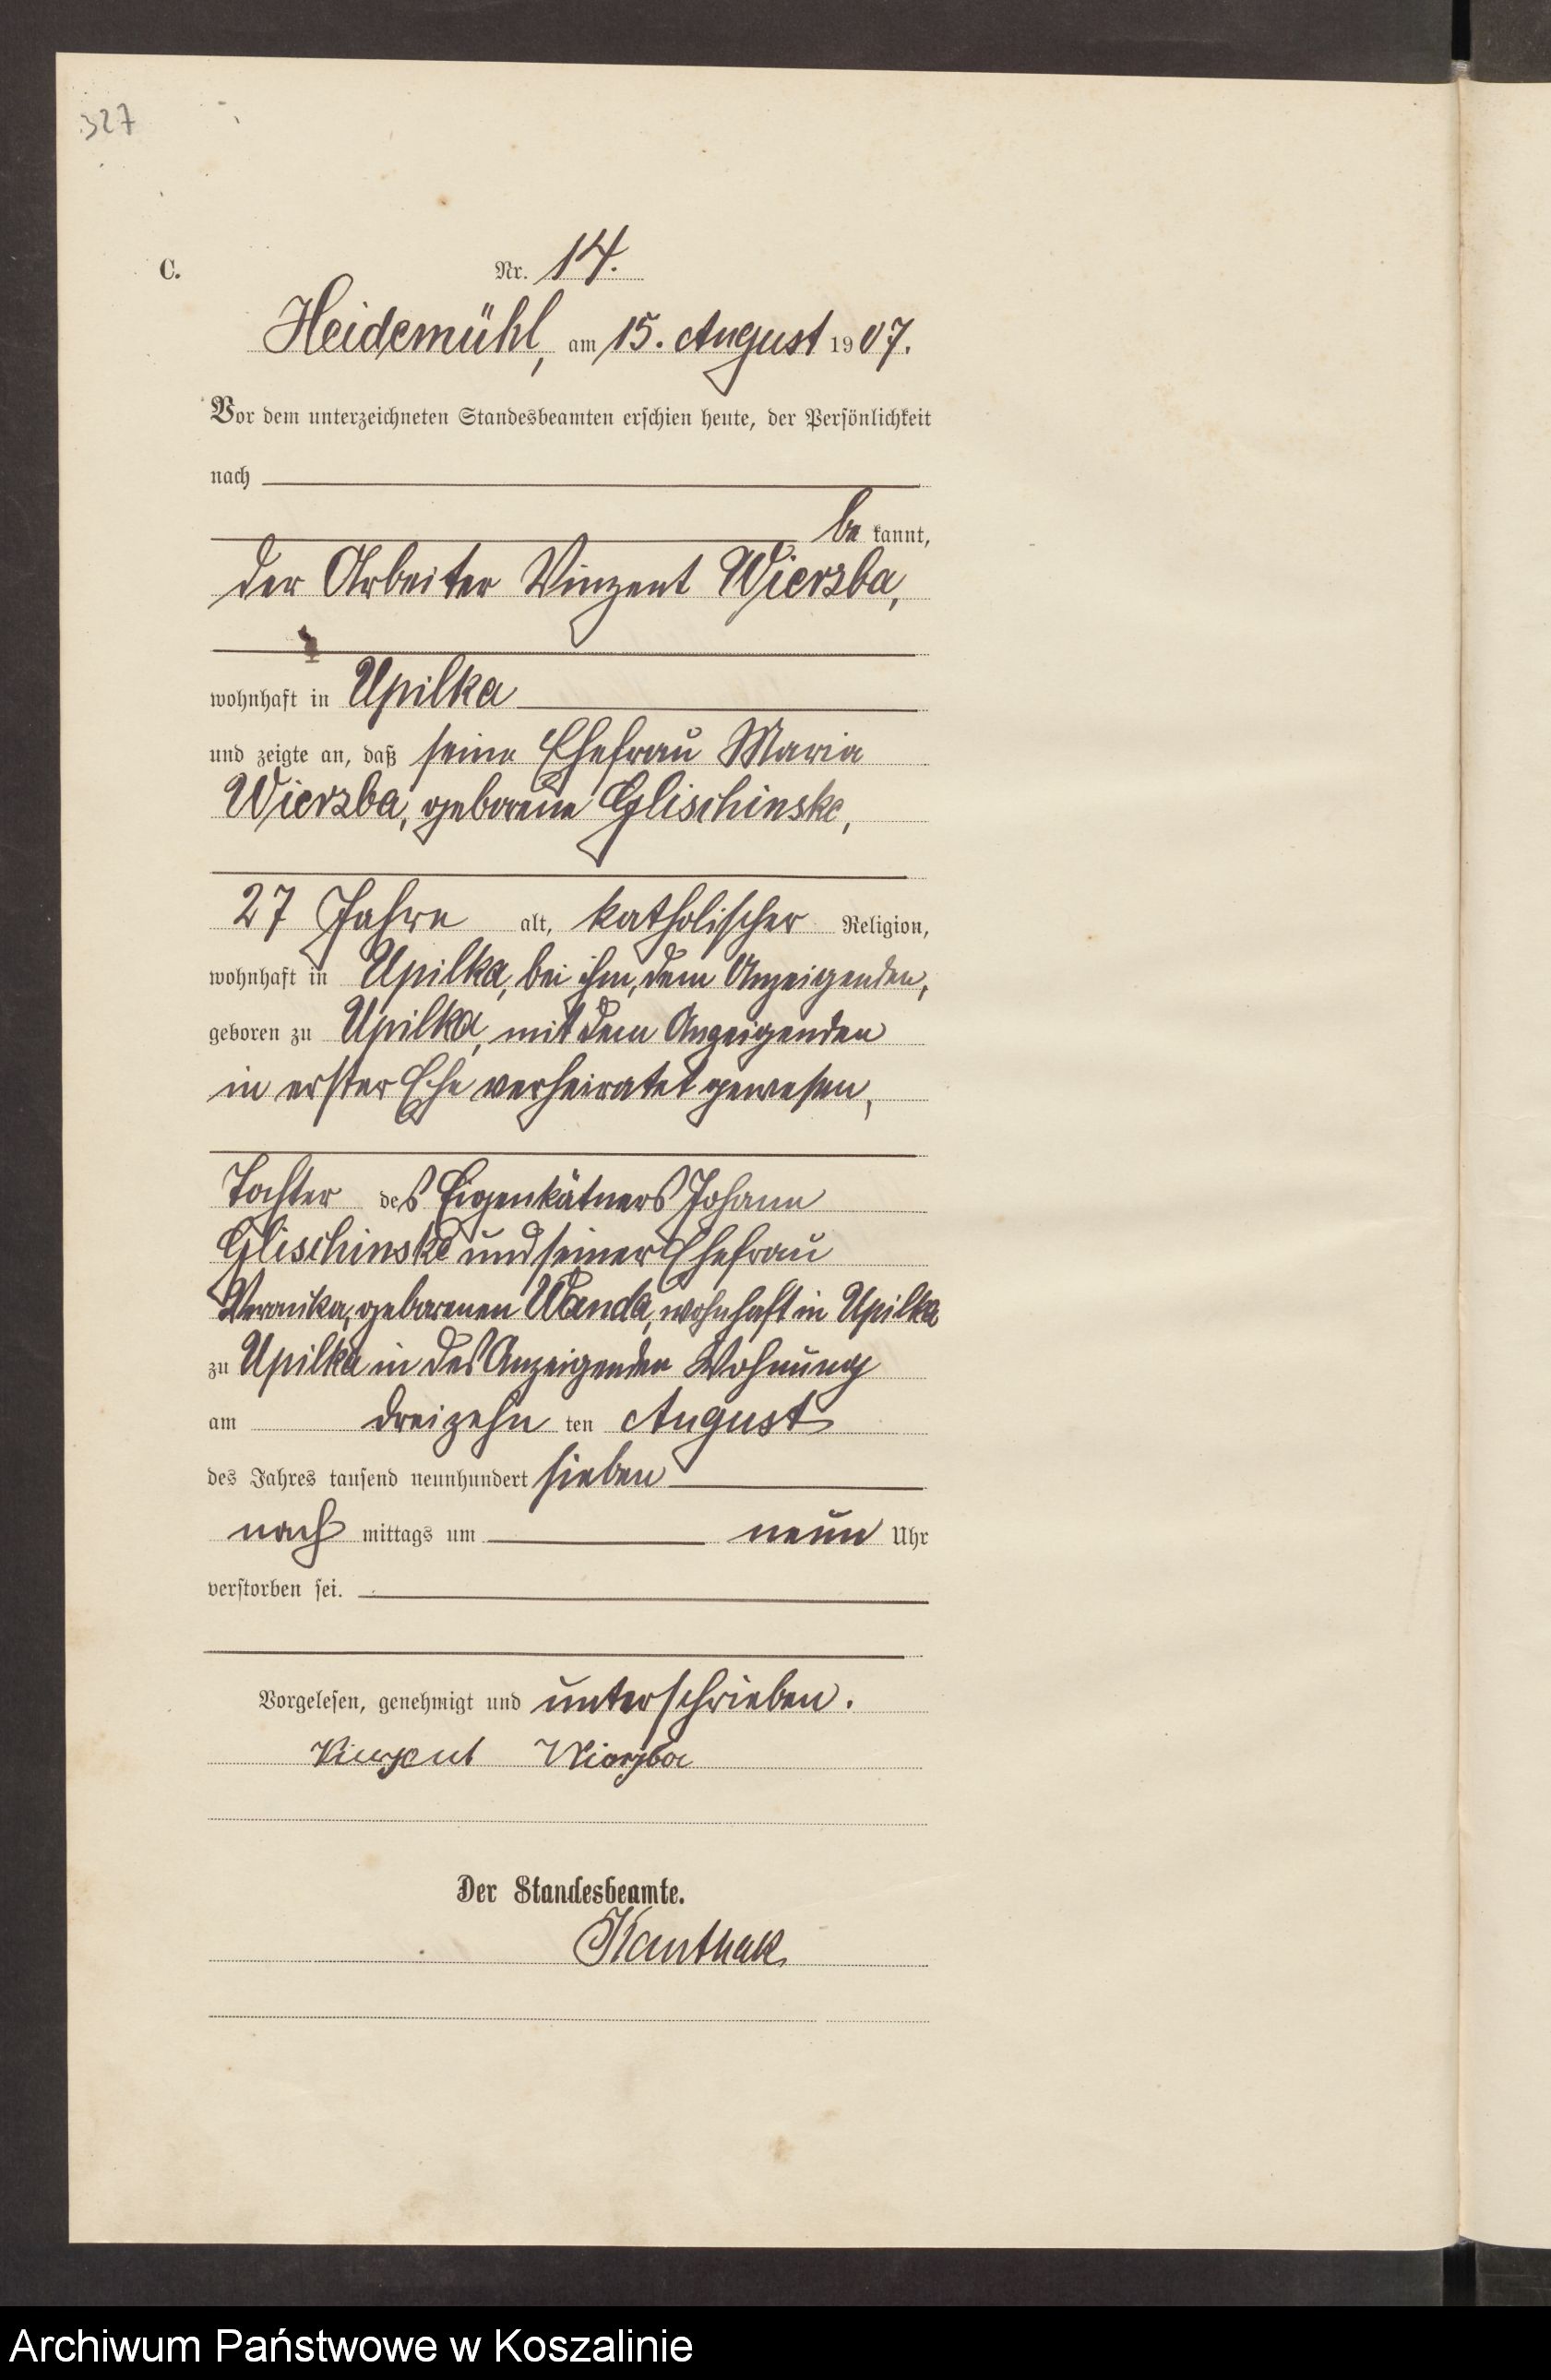 327
C. Nr. 14.
Heidemühl, am 15. August 1907.
Vor dem unterzeichneten Standesbeamten erschien heute, der Persönlichkeit
nach
be kannt,
der Arbeiter Vinzent Wierzba,
wohnhaft in Upilka
und zeigte an, daß seine Ehefrau Maria
Wierzba, geborene Glischinske,
27 Jahre alt, katholischer Religion,
wohnhaft in Upilka, bei ihm, dem Anzeigenden,
geboren zu Upilka, mit dem Anzeigenden
in erster Ehe verheiratet gewesen,
Tochter des Eigenkätners Johann
Glischinske und seiner Ehefrau
Veronika, geborenen Wanda, wohnhaft in Upilka
zu Upilka in des Anzeigenden Wohnung
am dreizehn ten August
des Jahres tausend neunhundert sieben
nach mittags um neun Uhr
verstorben sei.
Vorgelesen, genehmigt und unterschrieben.
Vinzent Wierzba
Der Standesbeamte.
Kanthak
Archiwum Państwowe w Koszalinie